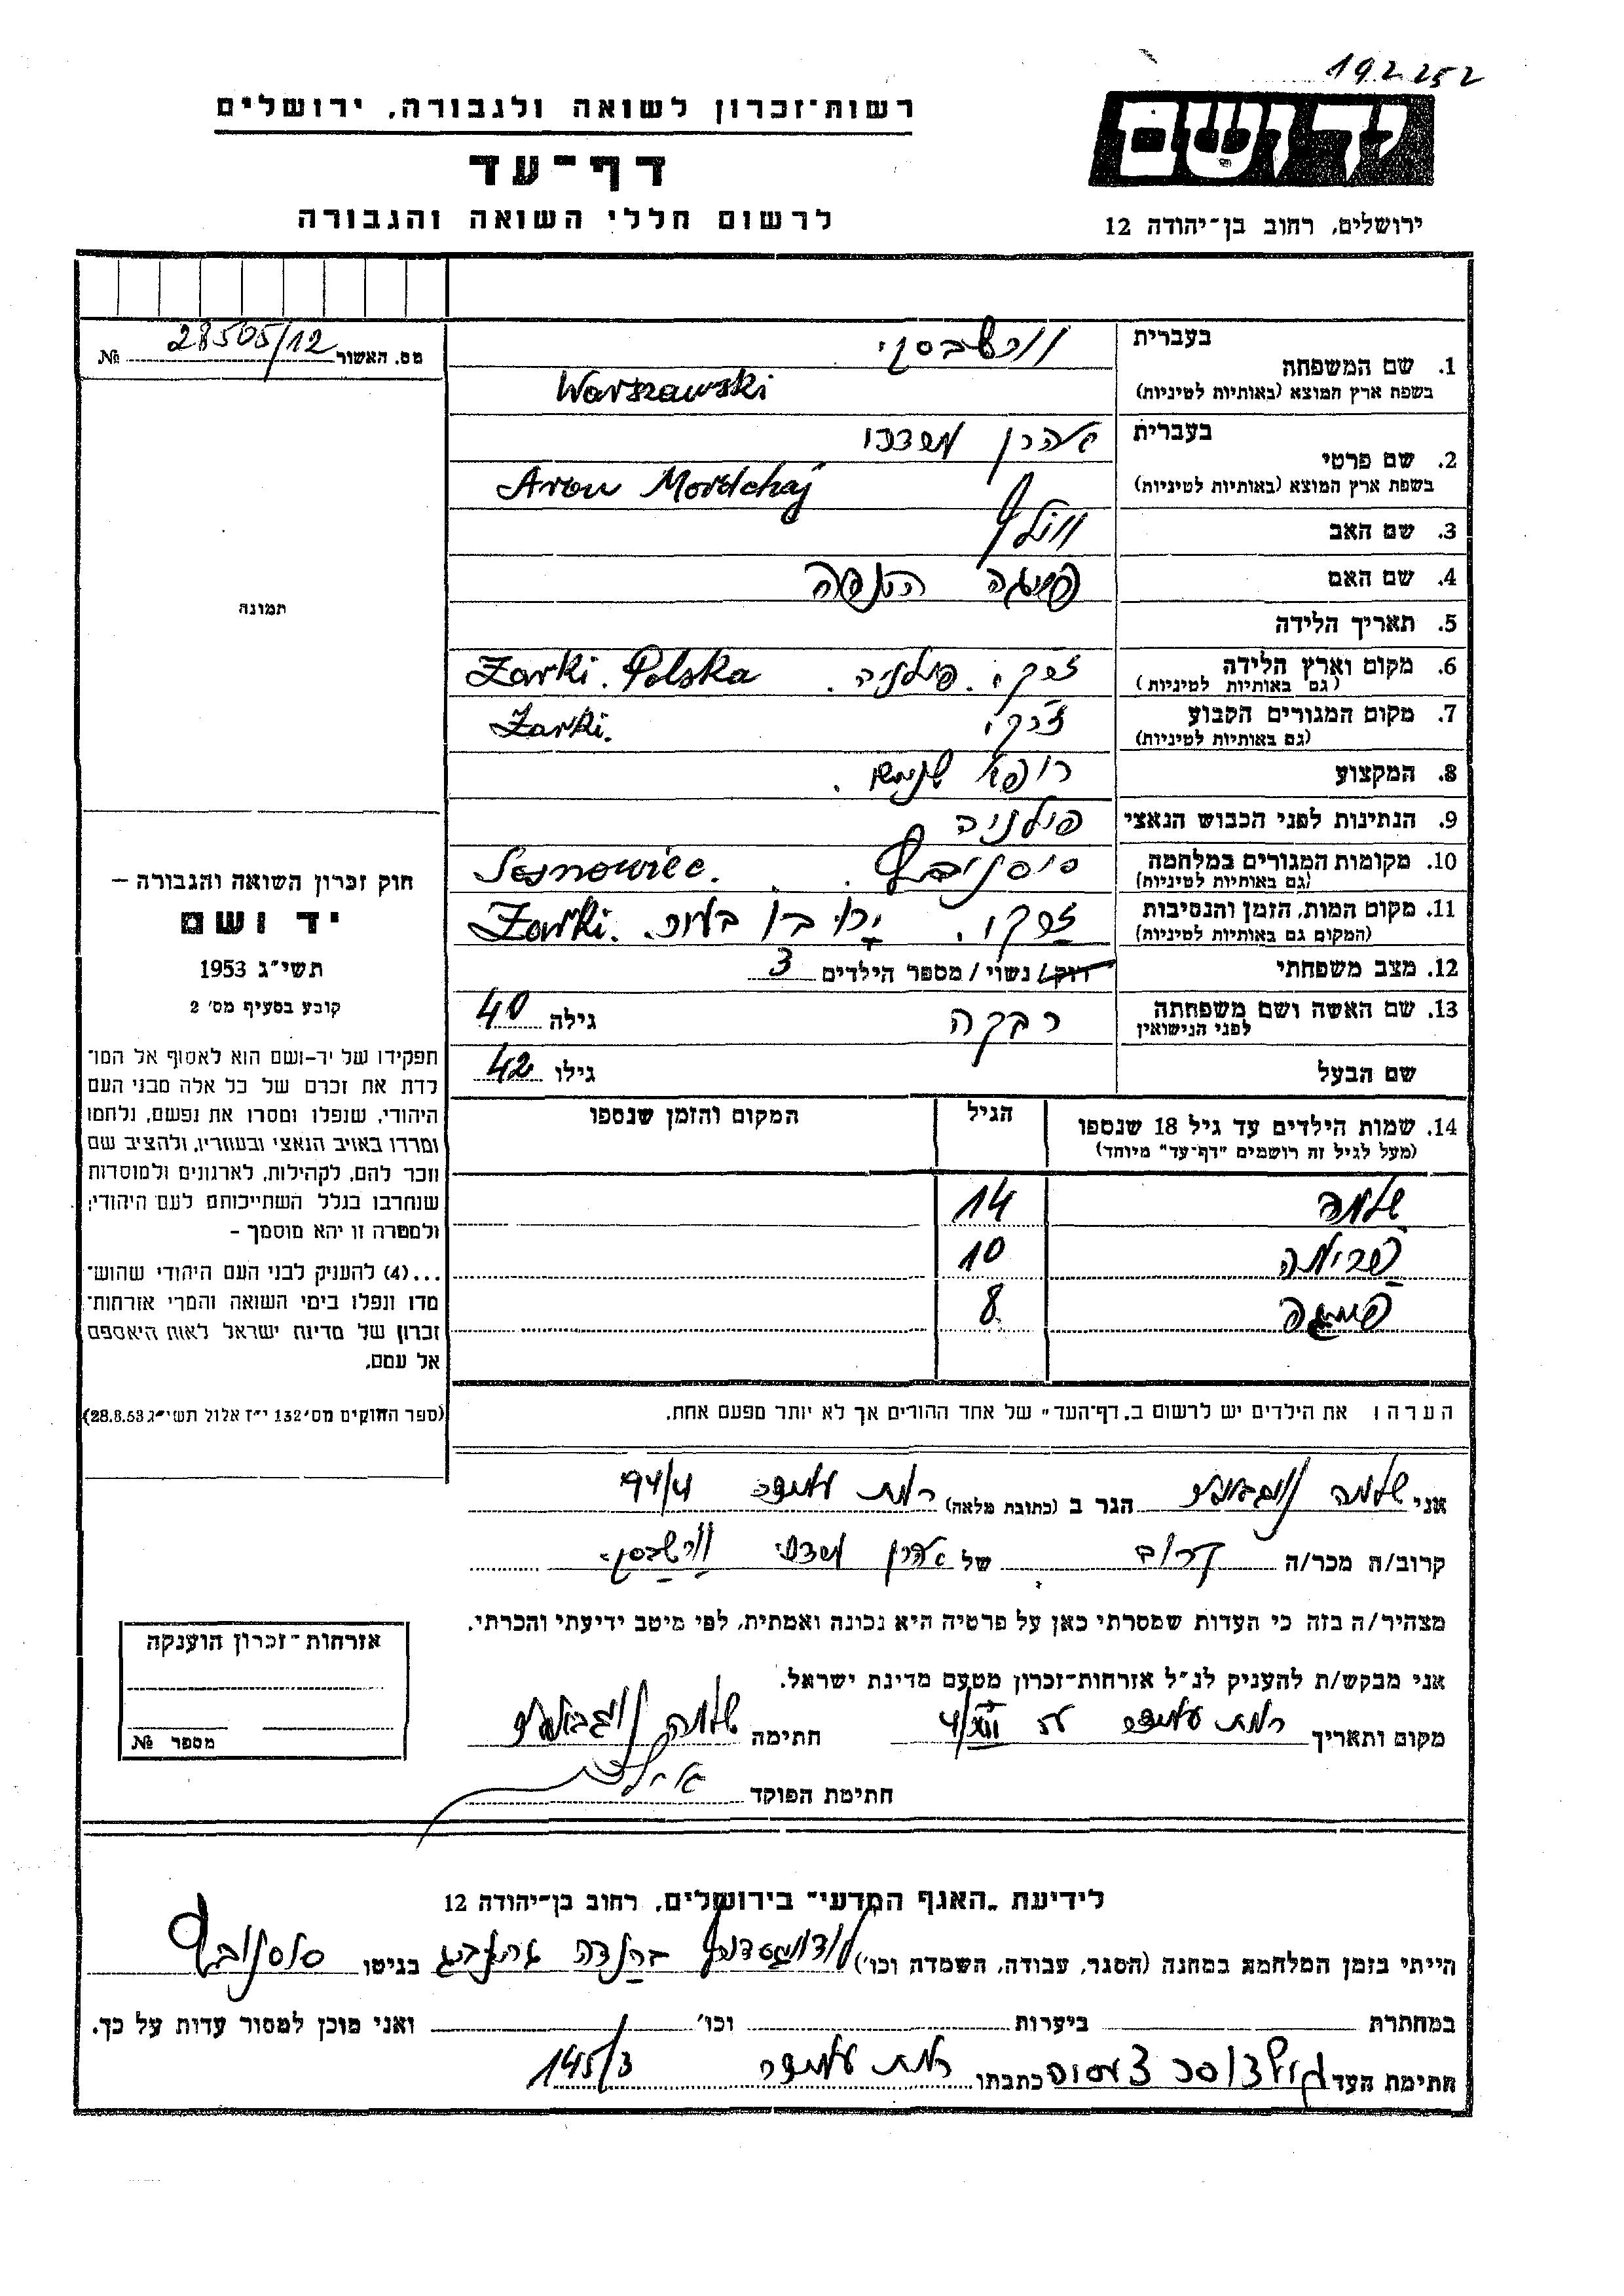 192252
רשות־זכרון לשואה ולגבורה, ירושלים
יד ושם
דף־עד
לרשום חללי השואה והגבורה
ירושלים, רחוב בן־יהודה 12
מס. האשור 28505/12 №
1. שם המשפחה בעברית וורשבסקי
בשפת ארץ המוצא (באותיות לטיניות) Warszawski
2. שם פרטי בעברית אהרן מרדכי
בשפת ארץ המוצא (באותיות לטיניות) Aron Mordchaj
3. שם האב וולף
4. שם האם
5. תאריך הלידה
6. מקום וארץ הלידה זרקי. פולניה. Żarki. Polska
(גם באותיות לטיניות)
7. מקום המגורים הקבוע זרקי Żarki.
(גם באותיות לטיניות)
8. המקצוע רופא שנים.
9. הנתינות לפני הכבוש הנאצי פולניה
10. מקומות המגורים במלחמה סוסנוביץ. Sosnowiec.
(גם באותיות לטיניות)
11. מקום המות, הזמן והנסיבות זרקי. Żarki.
(המקום גם באותיות לטיניות)
12. מצב משפחתי רווק/ נשוי / מספר הילדים 3
13. שם האשה ושם משפחתה רבקה גילה 40
לפני הנישואין
שם הבעל גילו 42
14. שמות הילדים עד גיל 18 שנספו הגיל המקום והזמן שנספו
(מעל לגיל זה רושמים "דף־עד" מיוחד)
שלמה 14
10
8
הערה: את הילדים יש לרשום ב„דף־העד" של אחד ההורים אך לא יותר מפעם אחת.
תמונה
חוק זכרון השואה והגבורה –
יד ושם
תשי"ג 1953
קובע בסעיף מס' 2
תפקידו של יד-ושם הוא לאסוף אל המו־
לדת את זכרם של כל אלה מבני העם
היהודי, שנפלו ומסרו את נפשם, נלחמו
ומרדו באויב הנאצי ובעוזריו, ולהציב שם
וזכר להם, לקהילות, לארגונים ולמוסדות
שנחרבו בגלל השתייכותם לעם היהודי;
ולמטרה זו יהא מוסמך –
...(4) להעניק לבני העם היהודי שהוש־
מדו ונפלו בימי השואה והמרי אזרחות־
זכרון של מדינת ישראל לאות היאספם
אל עמם.
(ספר החוקים מס' 132 י"ז אלול תשי"ג 28.8.53)
אני שלמה הגר ב (כתובת מלאה) רמת עמידר 94/4
קרוב/ה מכר/ה קרוב של אהרן מרדכי וורשבסקי
מצהיר/ה בזה כי העדות שמסרתי כאן על פרטיה היא נכונה ואמתית, לפי מיטב ידיעתי והכרתי.
אני מבקש/ת להעניק לנ"ל אזרחות־זכרון מטעם מדינת ישראל.
מקום ותאריך רמת עמידר 4/XII חתימה שלמה
חתימת הפוקד
אזרחות־זכרון הוענקה
מספר №
לידיעת „האגף המדעי" בירושלים, רחוב בן־יהודה 12
הייתי בזמן המלחמה במחנה (הסגר, עבודה, השמדה וכו') בגיטו סוסנוביץ
במחתרת ביערות וכו' ואני מוכן למסור עדות על כך.
חתימת העד כתבתו רמת עמידר 145/3